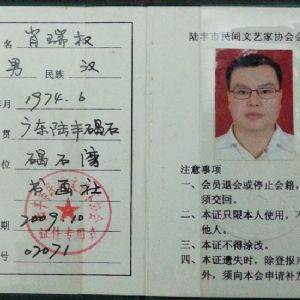 名 肖瑞权
男 民族 汉
年月 1974.6
贯 广东陆丰碣石
位 碣石湾
书画社
期 2009.10
号 02071
证件专用章
陆丰市民间文艺家协会会
注意事项
一、会员退会或停止会籍,
须交回。
二、本证只限本人使用,不
他人。
三、本证不得涂改。
四、本证遗失时,除登报声
外,须向本会申请补发